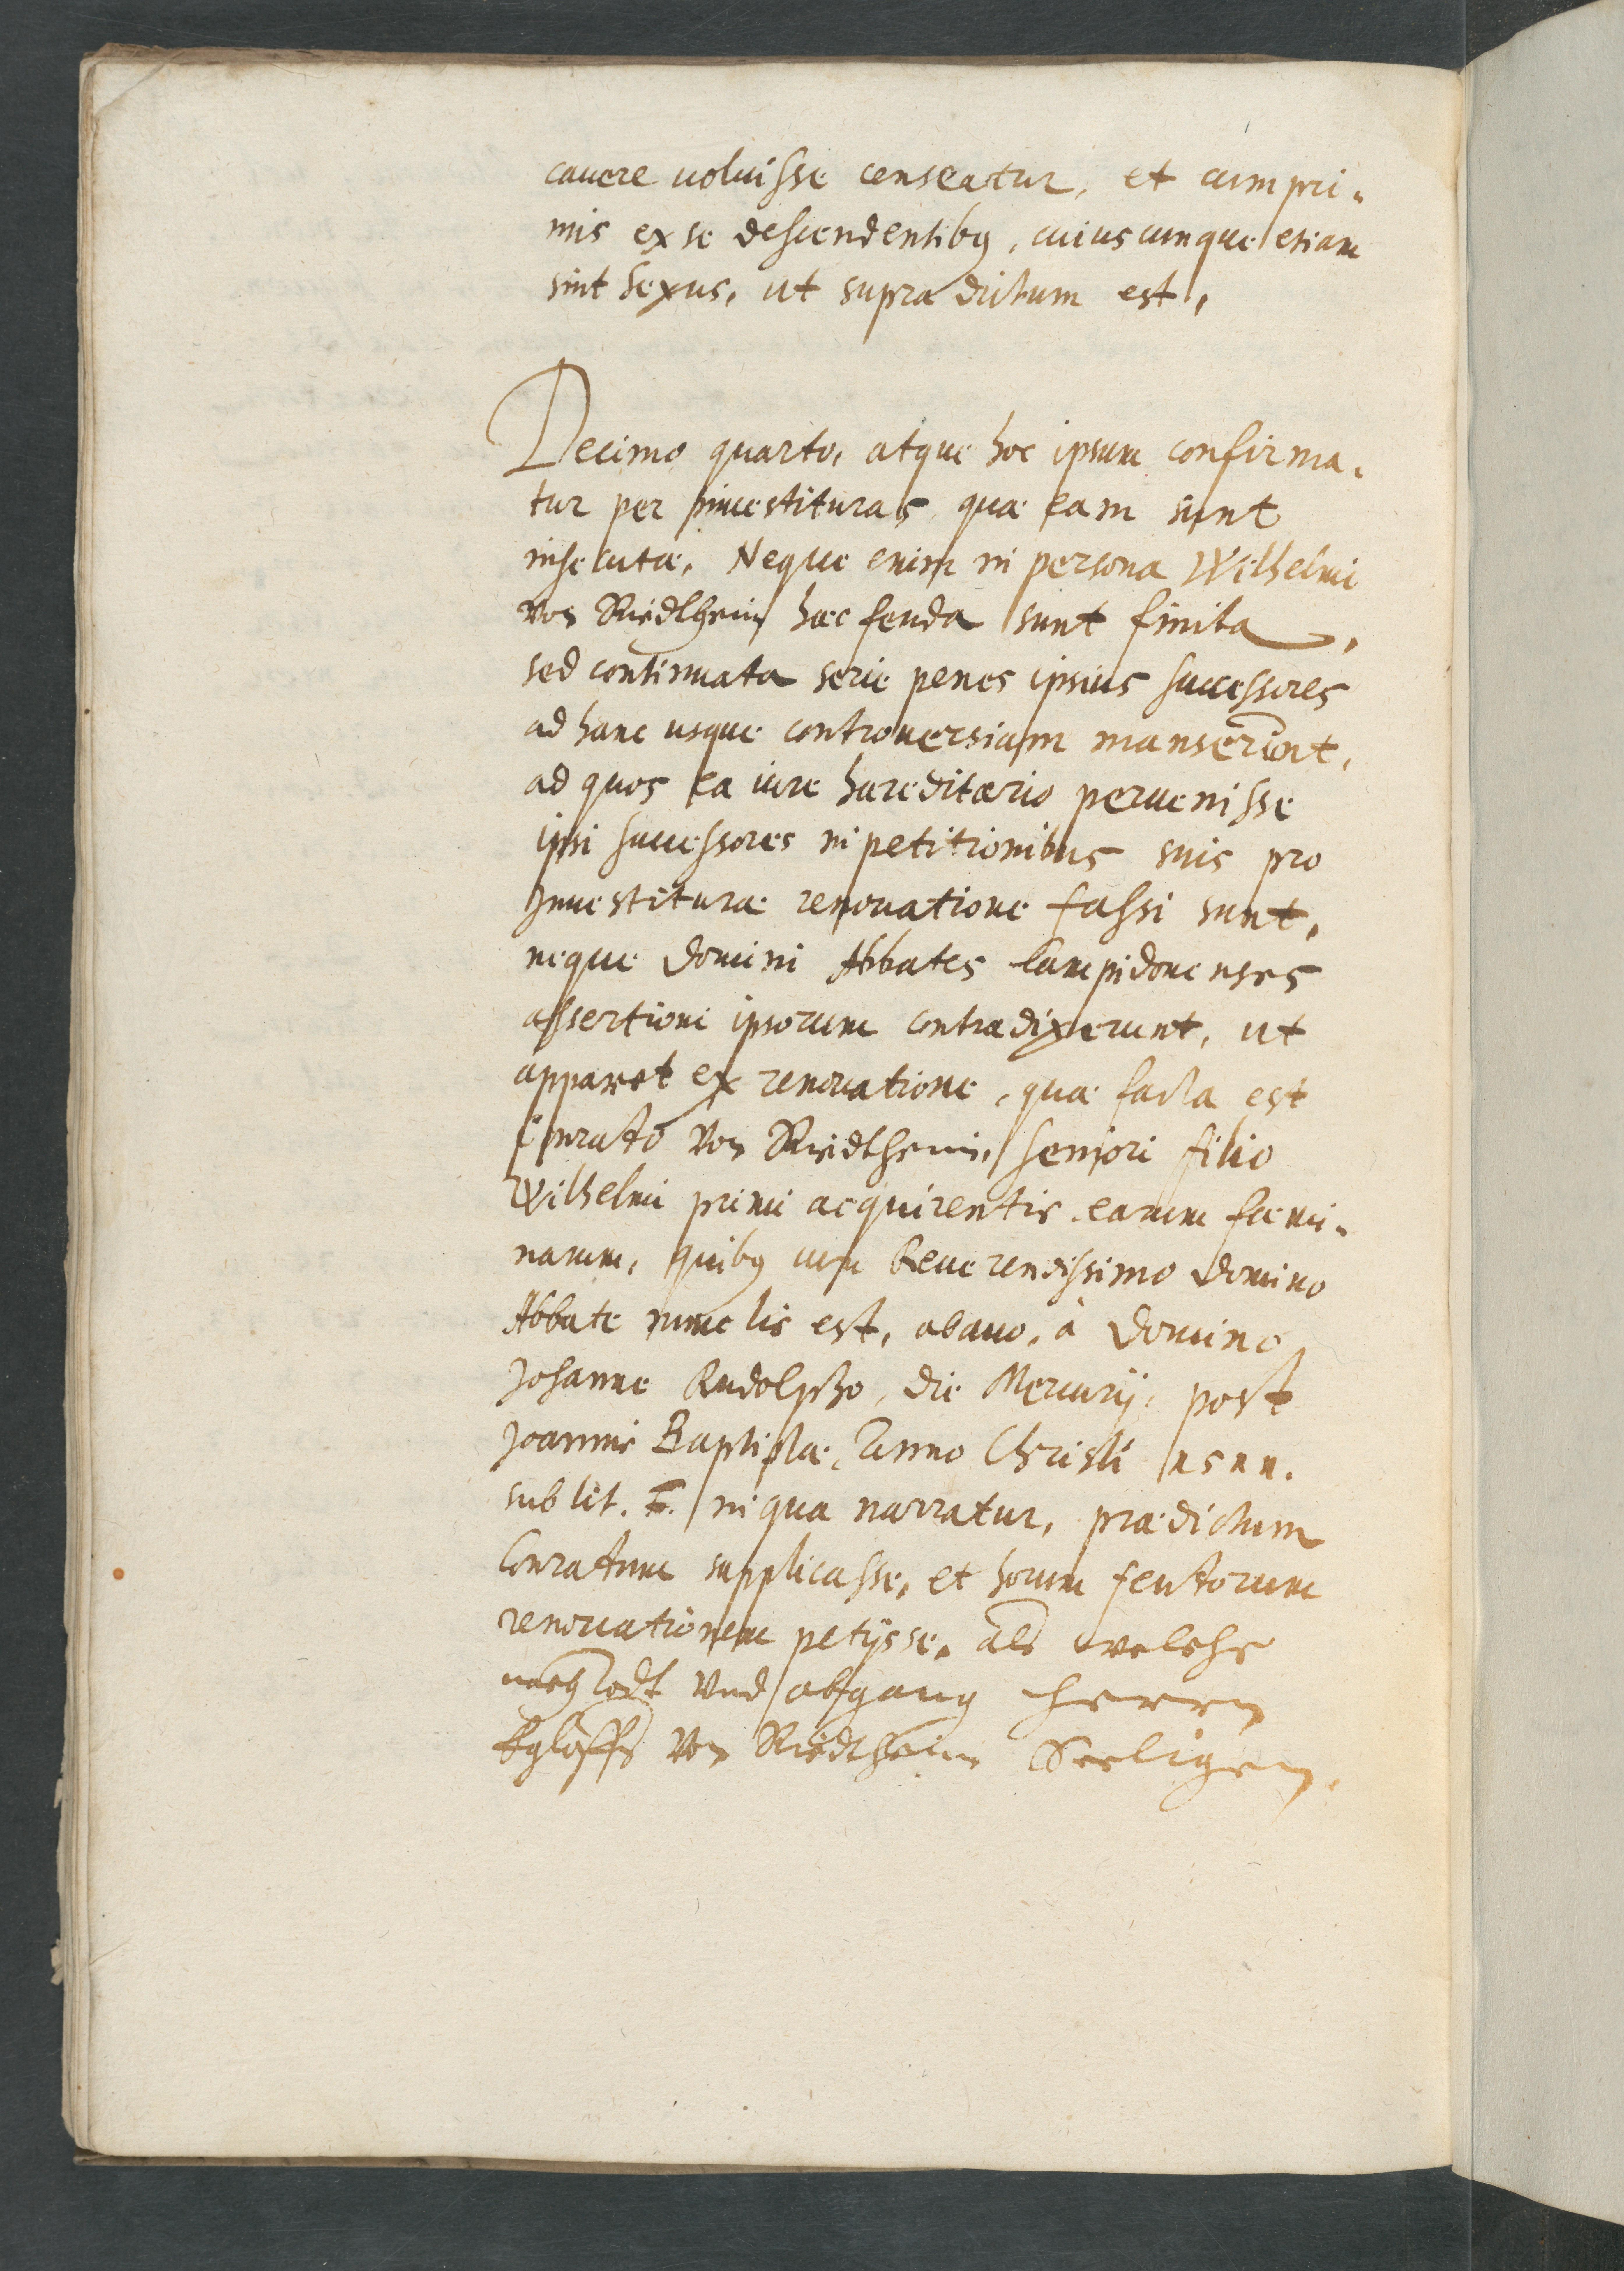 cauere uoluisse censeatur, et cum pri-
mis ex se descendentibus, cuiuscunque etiam
sint sexus, ut supra dictum est,
Decimo quarto, atque hoc ipsum confirma-
tur per inuestituras, quæ eam sunt
insecutæ, Neque enim in persona Wilhelmi
von Riedthein hæc feuda sunt finita,
sed continuata serie penes ipsius successores
ad hanc usque controuersiam manserunt,
ad quos ea iure hæreditario peruenisse
ipsi successores in petitionibus suis pro
Inuestituræ renouatione fassi sunt,
neque Domini Abbates Campidonenses
assertioni ipsorum contradixerunt, ut
apparet ex renouatione, quæ facta est
Conrato von Riedtheim, seniori filio
Wilhelmi primi acquirentis earum fæmi-
narum, quibus cum Reuerendissimo Domino
Abbate nunc lis est, abauo, à Domino
Johanne Rudolpho, die Mercurij, post
Joannis Baptistæ, Anno Christi 1522.
sub lit. F. in qua narratur, prædictum
Conratum supplicasse, et horum feutorum
renouationem petijsse, als welche
nach Todt vnd abgang Herren
Egloffs von Riedtheim Seeligen,